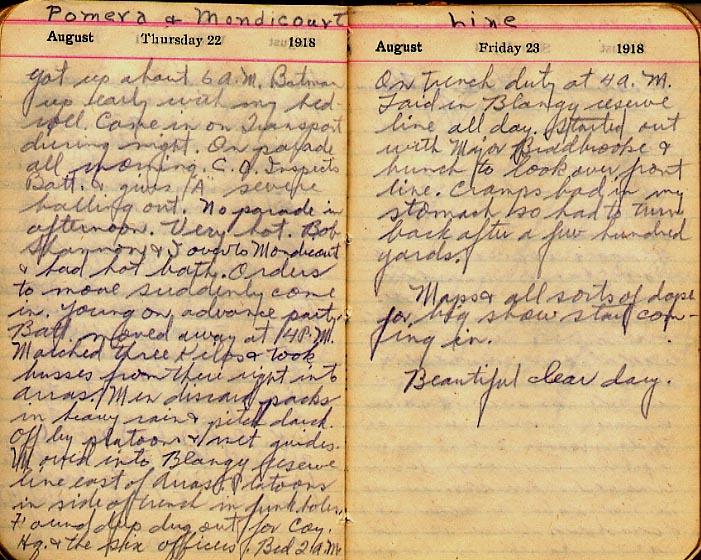 Pomera & Mondicourt
August Thursday 22 1918
got up about 6 A.M. Batman
up early with my bed-
roll. Came in on Transport
during night. On parade
all morning. C.O. Inspects
Batt. & gives "A" severe
balling out. No parade in
afternoon. Very hot. Bob
Shannon & I over to Mondicourt
& had hot bath. Orders
to move suddenly come
in. Young on advance party.
Batt. moved away at P.M.
Marched three Kilos & took
busses from there right into
Arras. Men discard packs
in heavy rain & pitch dark.
Off by platoons & met guides.
March into Blangy reserve
line east of Arras. Platoons
in side of trench in funk holes.
Found deep dug out for Coy.
Hq. & the six officers. Bed 2 A.M.
Line
August Friday 23 1918
On trench duty at 4 A.M.
Laid in Blangy reserve
line all day. Started out
with Major &
bunch to look over front
line. Cramps bad in my
stomach so had to turn
back after a few hundred
yards.
Maps & all sorts of dope
for big show start com-
ing in.
Beautiful clear day.